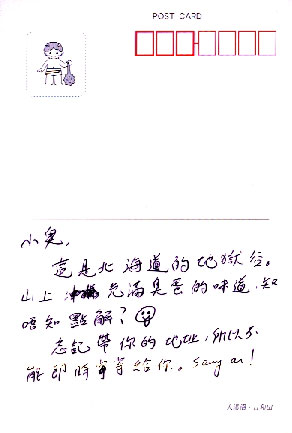 POST CARD
小鬼,
這是北海道的地獄谷。
山上充滿臭蛋的味道,知
唔知點解?
忘記帶你的地址,所以不
能即時寄給你。Sorry ar!